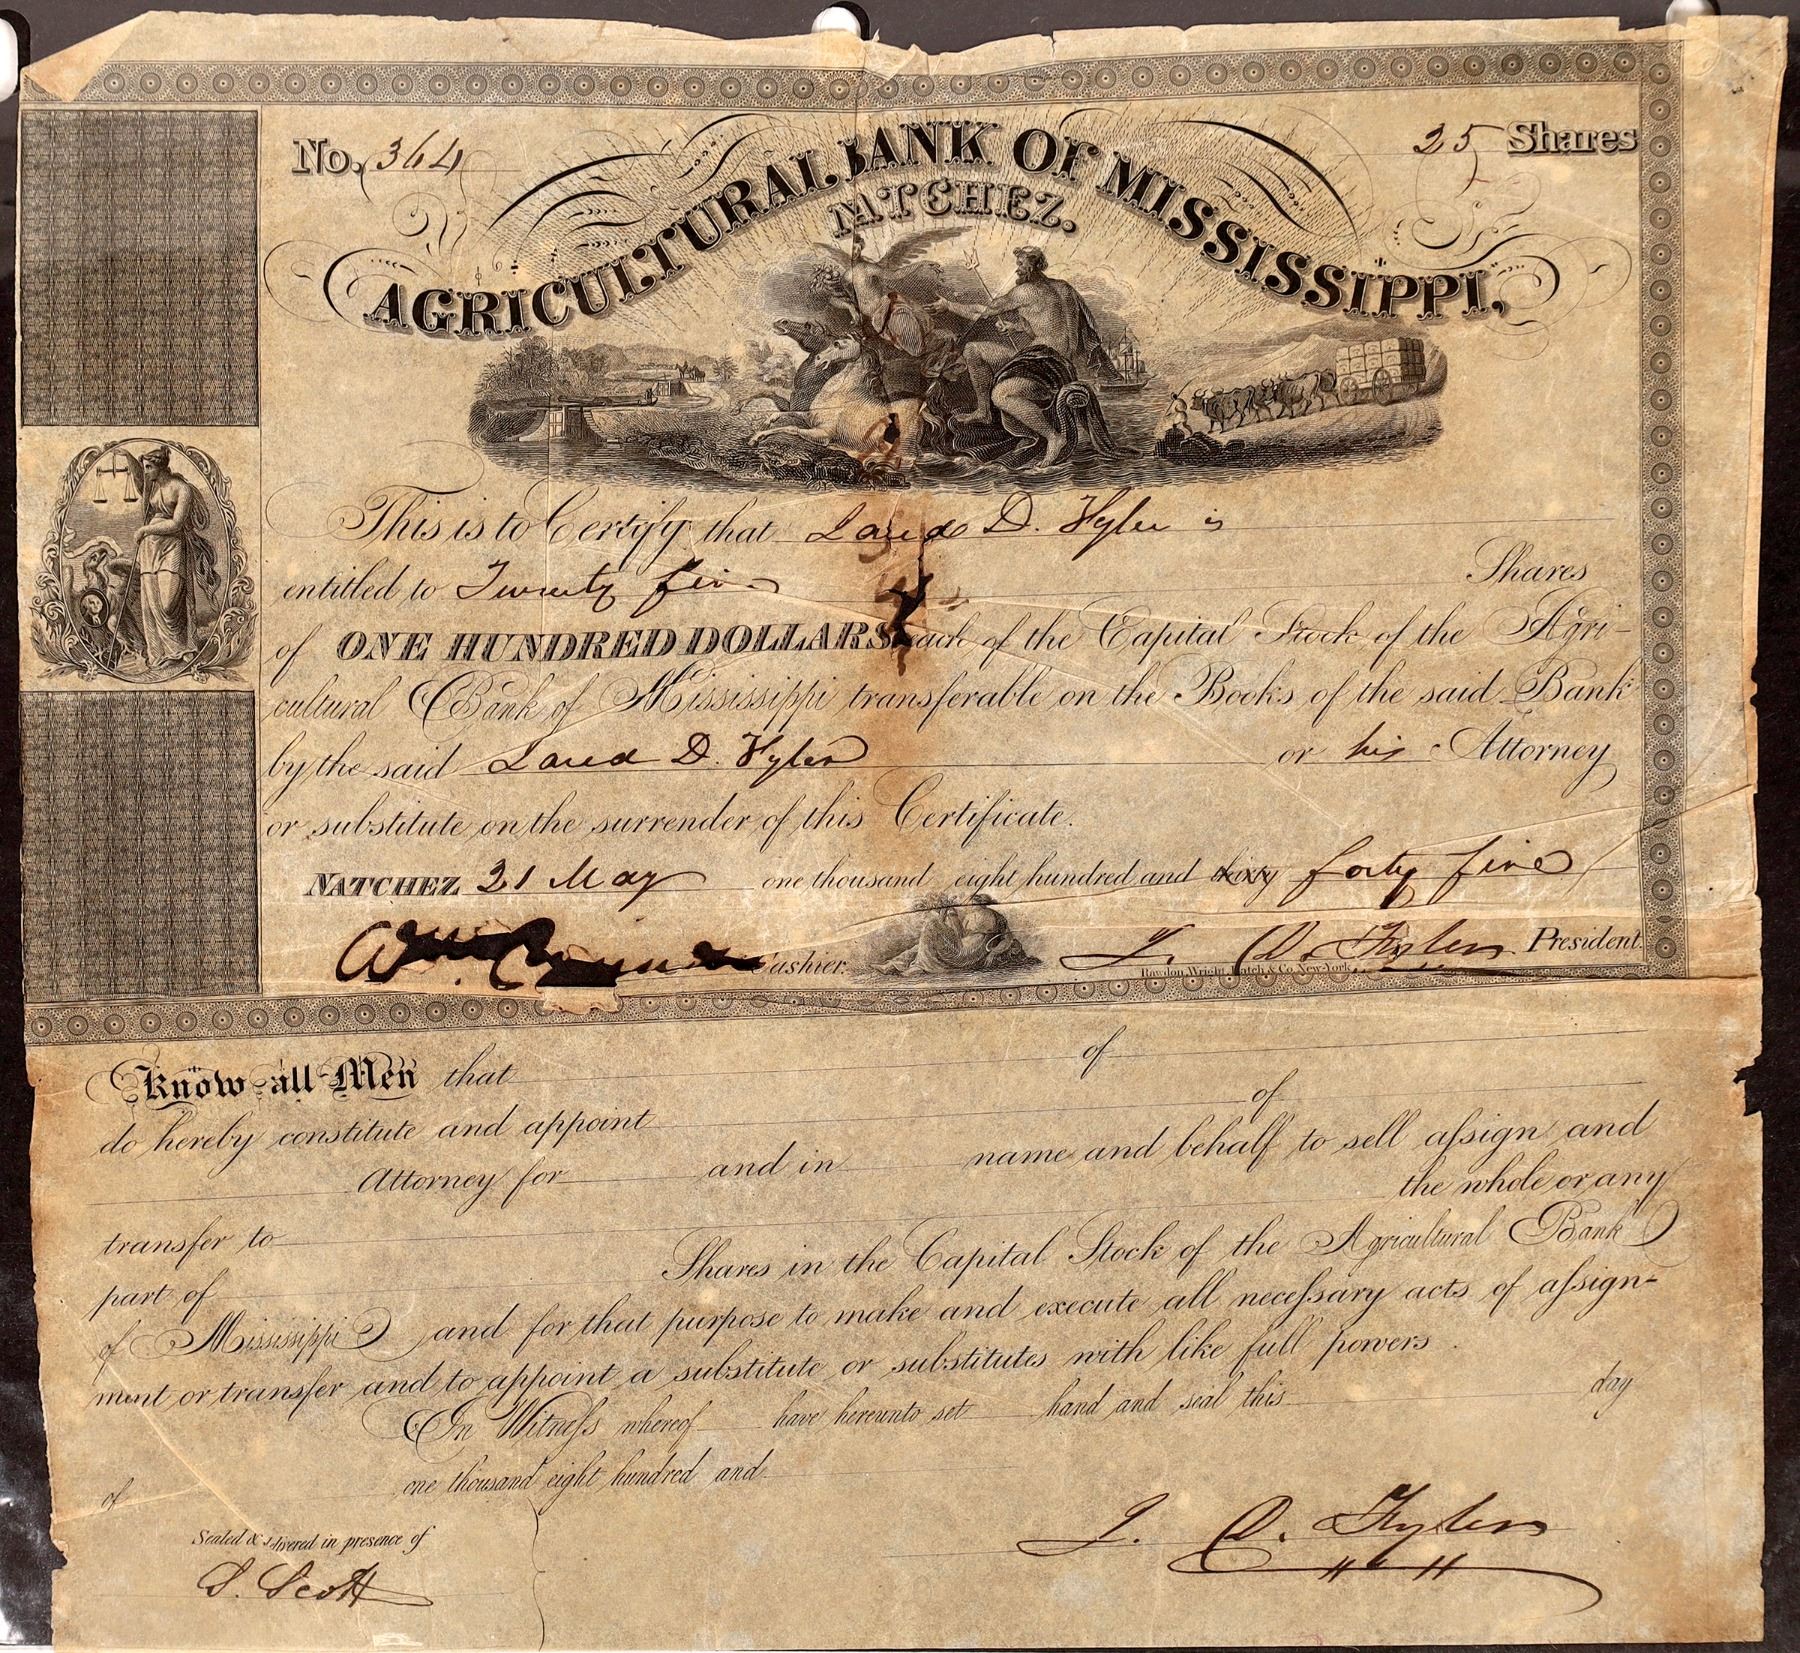 No. 364
25 Shares
AGRICULTURAL BANK OF MISSISSIPPI,
NATCHEZ.
This is to Certify that D. is
entitled to Twenty five Shares
of ONE HUNDRED DOLLARS each of the Capital Stock of the Agri-
cultural Bank of Mississippi transferable on the Books of the said Bank
by the said D. or his Attorney
or substitute on the surrender of this Certificate.
NATCHEZ 21 May one thousand eight hundred and thirty forty five
Cashier.
President.
Rawdon, Wright, Hatch & Co. New-York.
Know all Men that of
do hereby constitute and appoint of
Attorney for and in name and behalf to sell assign and
transfer to the whole or any
part of Shares in the Capital Stock of the Agricultural Bank
of Mississippi and for that purpose to make and execute all necessary acts of assign-
ment or transfer and to appoint a substitute or substitutes with like full powers.
In Witness whereof have hereunto set hand and seal this day
of one thousand eight hundred and
Sealed & delivered in presence of
S. Scott